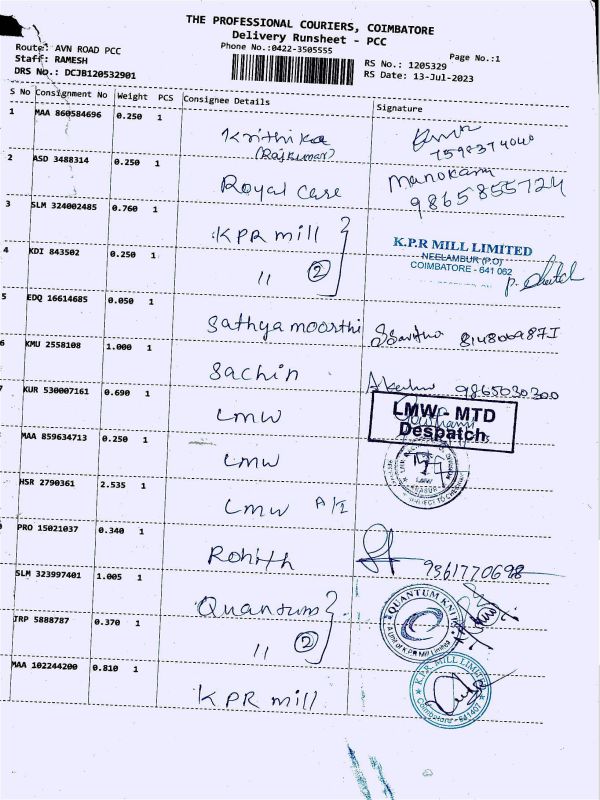 THE PROFESSIONAL COURIERS, COIMBATORE
Delivery Runsheet - PCC
Phone No.:0422-3505555
Page No.:1
Route: AVN ROAD PCC
Staff: RAMESH
DRS No.: DCJB120532901
RS No.: 1205329
RS Date: 13-Jul-2023
S No Consignment No Weight PCS Consignee Details Signature
1 MAA 860584696 0.250 1
Krithika
(Rajkumar)
7598374040
2 ASD 3488314 0.250 1
Royal Case
Manokaran
9865855724
3 SLM 324002485 0.760 1
KPR mill
K.P.R MILL LIMITED
NEELAMBUR (P.O)
COIMBATORE - 641 062
4 KDI 843502 0.250 1
11 2
5 EDQ 16614685 0.050 1
Sathya moorthi
6 KMU 2558108 1.000 1
Sachin
9865030300
KUR 530007161 0.690 1
LMW
LMW - MTD
Despatch
MAA 859634713 0.250 1
LMW
LMW
HSR 2790361 2.535 1
LMW A/2
PRO 15021037 0.340 1
Rohith
9361770698
SLM 323997401 1.005 1
Quantum
QUANTUM KNITS
A Unit of K.P.R Mill Limited
JRP 5888787 0.370 1
11 2
MAA 102244200 0.810 1
KPR mill
K.P.R. MILL LIMITED
Coimbatore - 641407